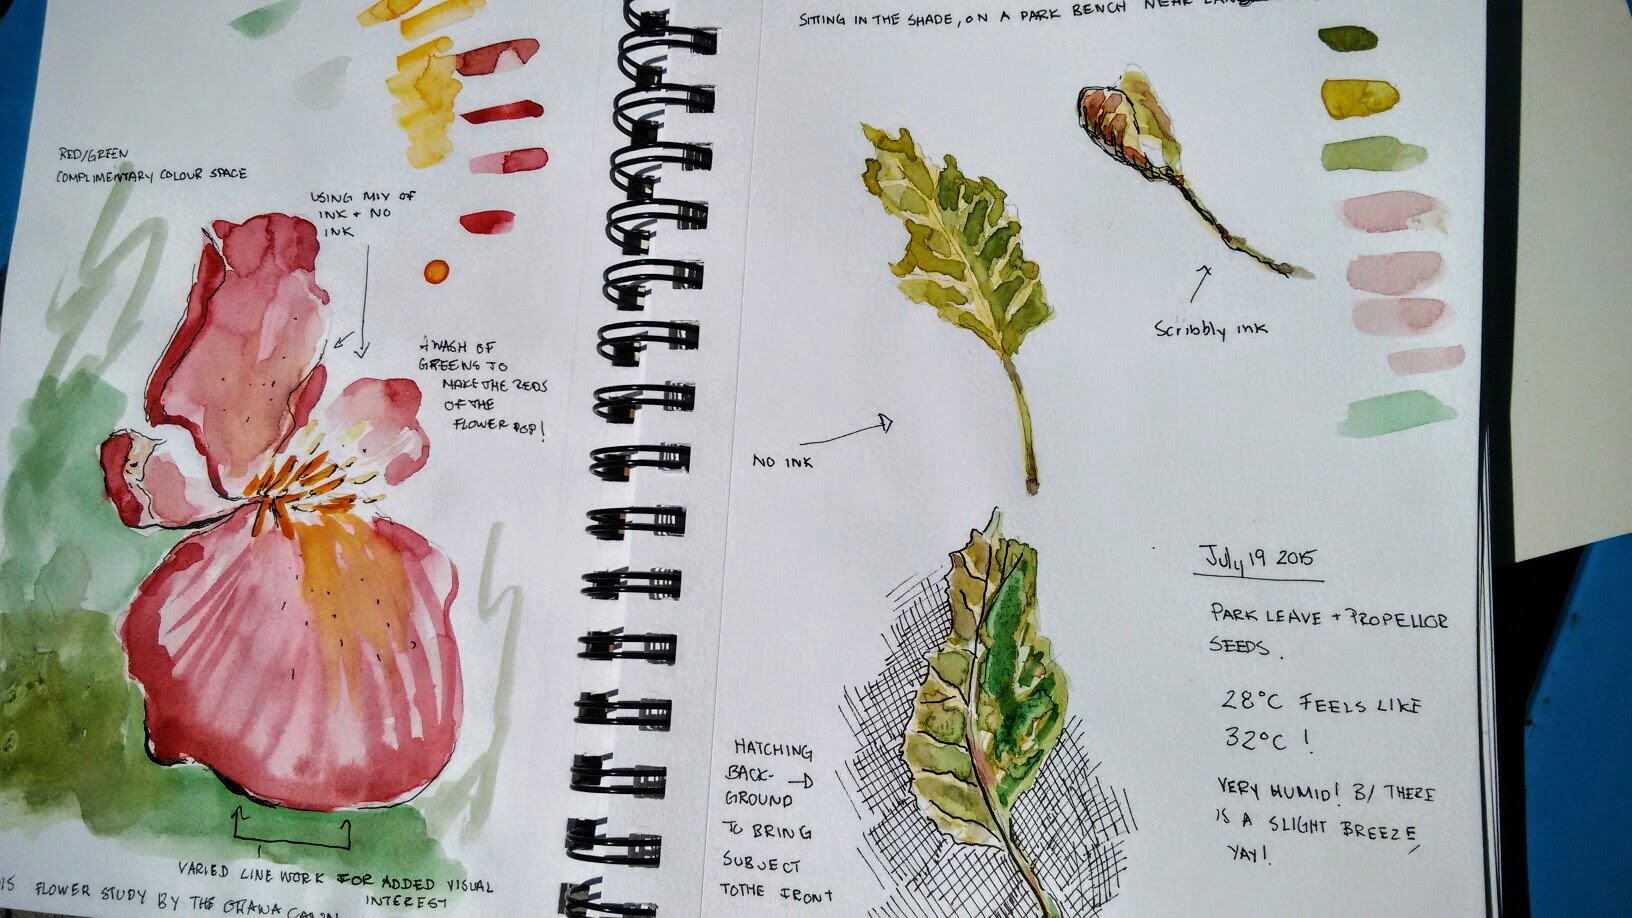 RED/GREEN
COMPLIMENTARY COLOUR SPACE
USING MIX OF
INK + NO
INK
A WASH OF
GREENS TO
MAKE THE REDS
OF THE
FLOWER POP!
VARIED LINE WORK FOR ADDED VISUAL
INTEREST
FLOWER STUDY BY THE OTTAWA CANAL
SITTING IN THE SHADE, ON A PARK BENCH NEAR
Scribbly ink
NO INK
July 19 2015
PARK LEAVE + PROPELLOR
SEEDS.
28°C FEELS LIKE
32°C !
VERY HUMID! B/ THERE
IS A SLIGHT BREEZE
YAY!
HATCHING
BACK-
GROUND
TO BRING
SUBJECT
TO THE FRONT